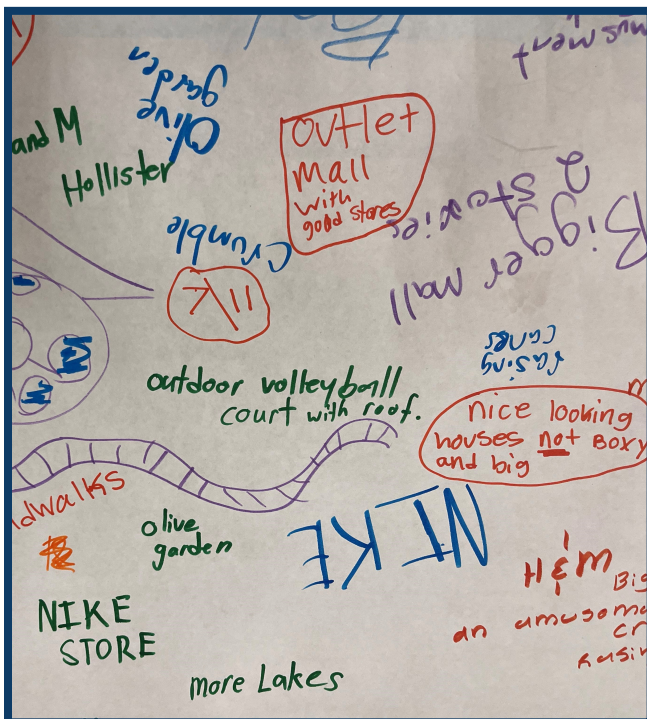 usment
Olive
garden
and M
Hollister
outlet
mall
with
good stores
Bigger mall
2 stories
Crumble
outdoor volleyball
court with roof.
Rasing
canes
nice looking
houses not BOXY
and big
dwalks
olive
garden
NIKE
NIKE
STORE
H&M
Big
an amusome
cr
more Lakes